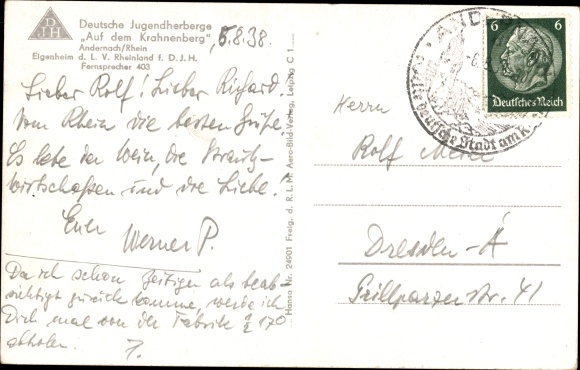 Deutsche Jugendherberge
"Auf dem Krahnenberg"
Andernach/Rhein
Eigenheim d. L. V. Rheinland f. D. J. H.
Fernsprecher 403
DJH
5.8.38.
Lieber Rolf! Lieber Richard
Vom Rhein die besten Grüße.
Es lebe der Wein, die
wirtschaften und die Liebe!
Euer
Werner P.
Da ich schon zeitiger als beab-
sichtigt zurück komme, werde ich
Dich mal von der Fabrik
abholen.
Hansa Nr. 24901 Freig. d. R. L. M. Aero-Bild-Verlag, Leipzig C 1
6 6
Deutsches Reich
deutsche Stadt am
Herrn
Rolf
Dresden-A
Grillparzerstr. 41